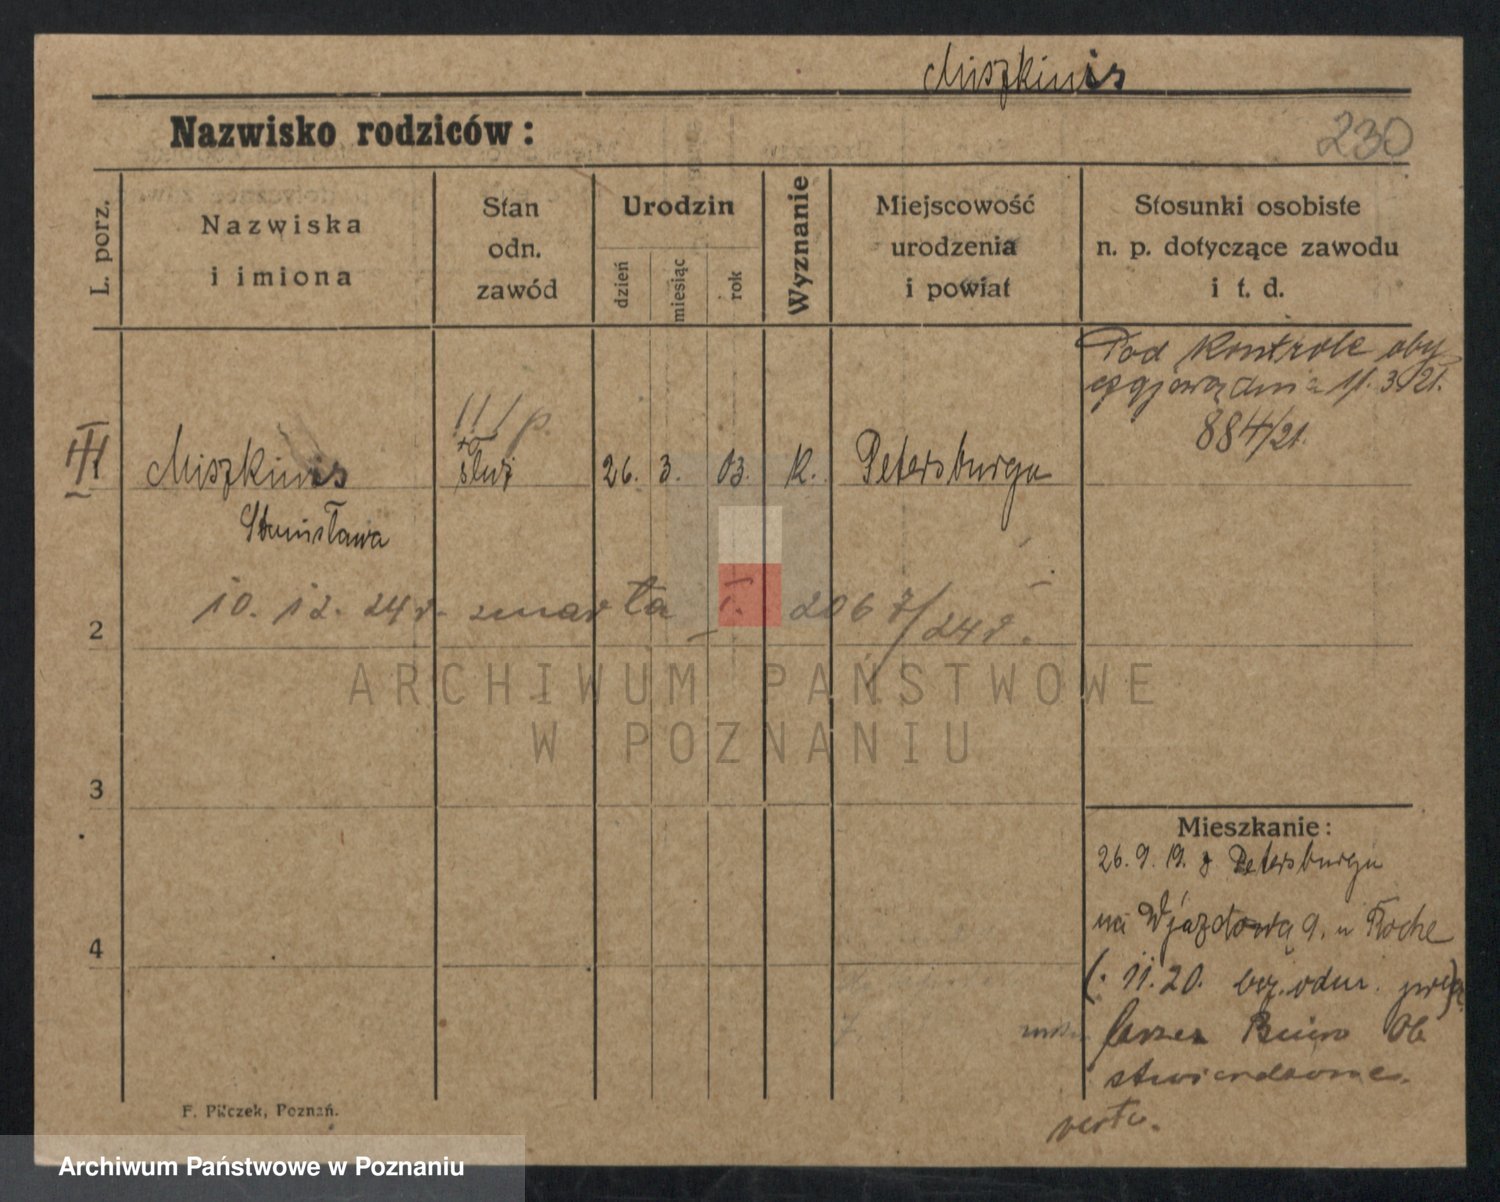 Miszkinis
Nazwisko rodziców:
230
L. porz.
Nazwiska
i imiona
Stan
odn.
zawód
Urodzin
dzień
miesiąc
rok
Wyznanie
Miejscowość
urodzenia
i powiat
Stosunki osobiste
n. p. dotyczące zawodu
i t. d.
Pod kontrole oby
dnia 11. 3. 21.
884/21.
III
Miszkinis
służ
26. 3. 03. K. Petersburga
Stanisława
10. 12. 24 r. zmarła I. 2067/24 r.
2
3
4
Mieszkanie:
26. 9. 19. z Petersburga
na Wjazdową 9. u Roche
(. 11. 20.
przez Biuro Ob
stwierdzone.
verte.
F. Pilczek, Poznań.
ARCHIWUM PAŃSTWOWE
W POZNANIU
Archiwum Państwowe w Poznaniu